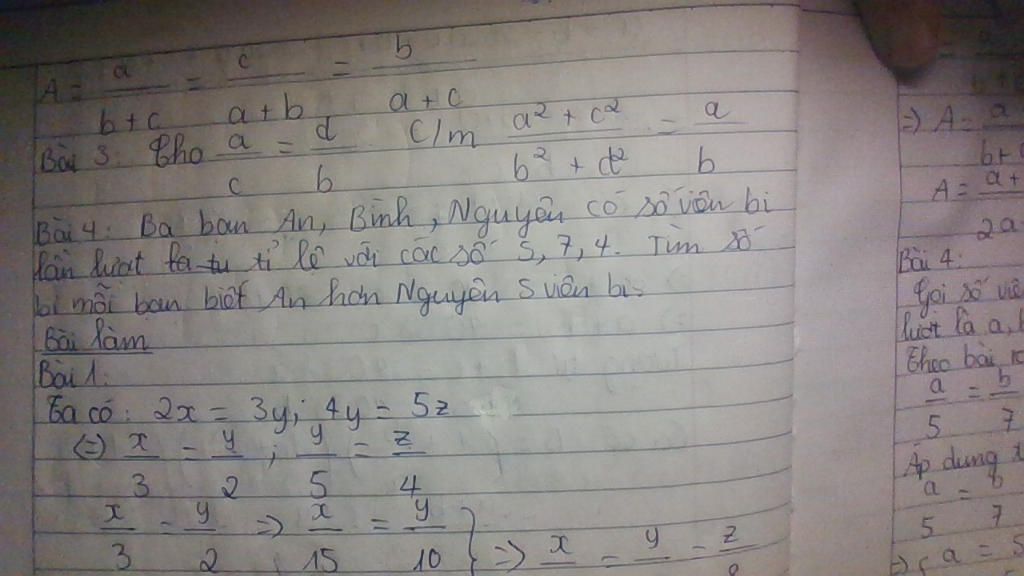 A = a/(b+c) = c/(a+b) = b/(a+c)
Bài 3: Cho a/c = d/b C/m (a² + c²)/(b² + d²) = a/b
Bài 4: Ba bạn An, Bình, Nguyên có số viên bi
lần lượt là tu tỉ lệ với các số 5, 7, 4. Tìm số
bi mỗi bạn biết An hơn Nguyên 5 viên bi.
Bài làm
Bài 1:
Ta có: 2x = 3y; 4y = 5z
(=) x/3 = y/2 ; y/5 = z/4
x/3 = y/2 => x/15 = y/10 } => x = y = z
=> A = a
A = a+
2a
Bài 4:
Gọi số viê
lượt là a,
Theo bài
a/5 = b/7
Áp dụng
a/5 = b/7
=> { a = 5